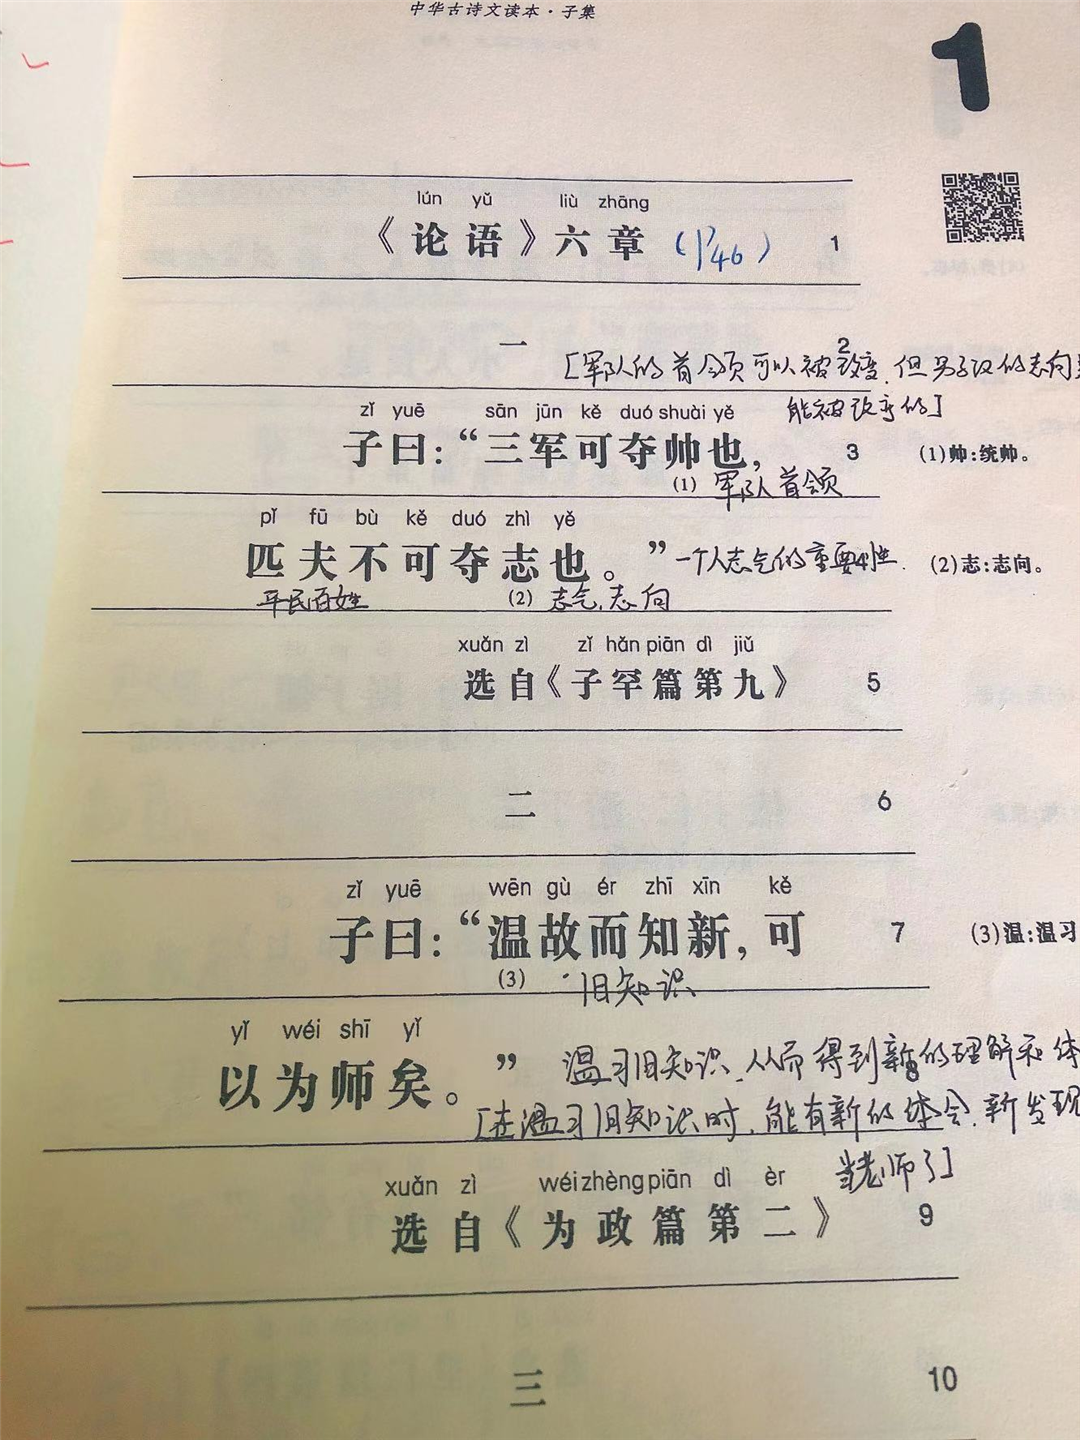 中华古诗文读本·子集
1
lún yǔ liù zhāng
《论语》六章 (P46) 1
一 2
[军队的首领可以被改变,但男子汉的志向
能被改变的]
zǐ yuē sān jūn kě duó shuài yě
子曰:“三军可夺帅也, 3 (1)帅:统帅。
(1) 军队首领
pǐ fū bù kě duó zhì yě
匹夫不可夺志也。” 一个人志气的重要性. (2)志:志向。
平民百姓 (2) 志气,志向
xuǎn zì zǐ hǎn piān dì jiǔ
选自《子罕篇第九》 5
二 6
zǐ yuē wēn gù ér zhī xīn kě
子曰:“温故而知新,可 7 (3)温:温习
(3) 旧知识
yǐ wéi shī yǐ
以为师矣。” 温习旧知识,从而得到新的理解和体
[在温习旧知识时,能有新的体会,新发现
当老师了]
xuǎn zì wéi zhèng piān dì èr
选自《为政篇第二》 9
三 10